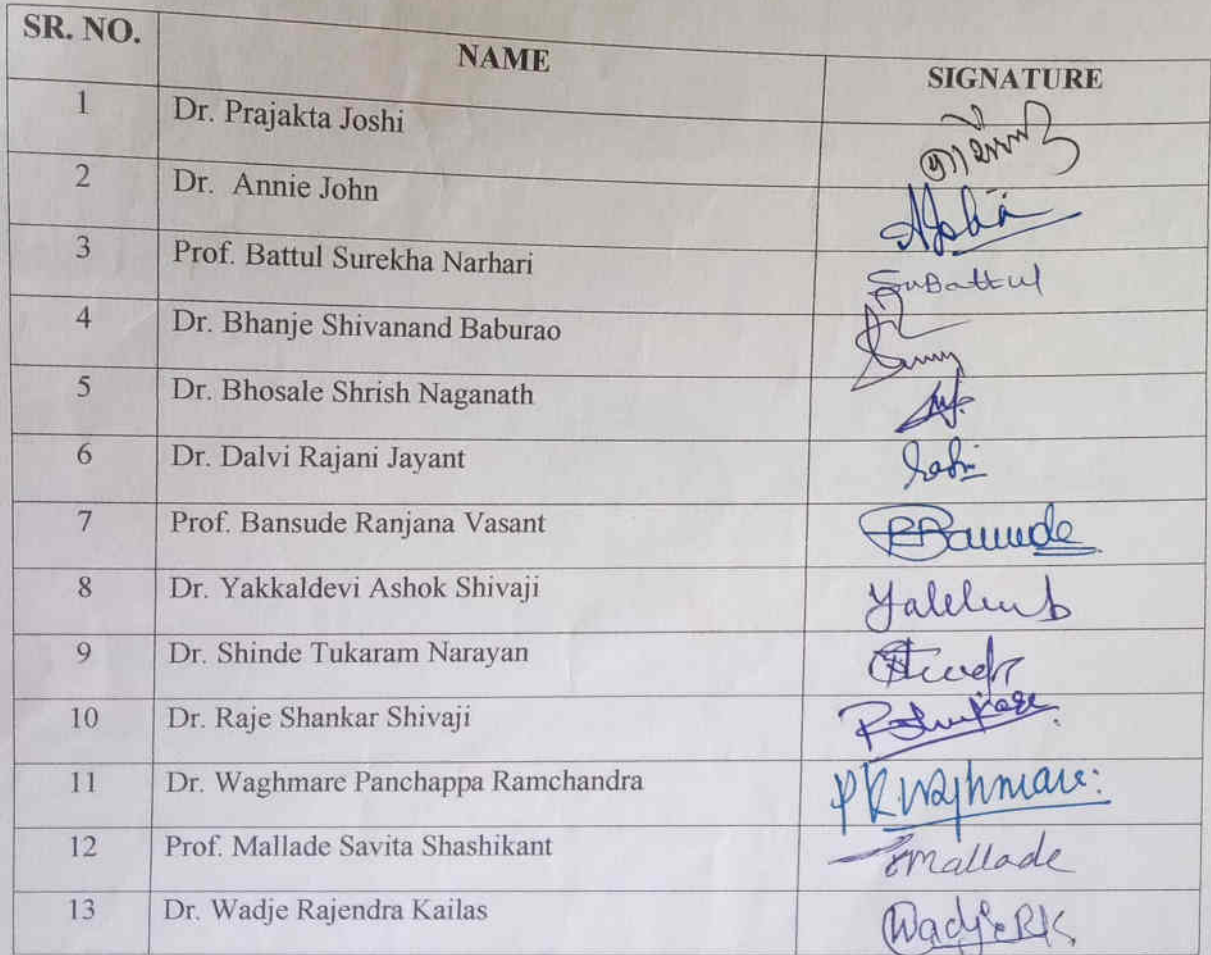 SR. NO. NAME SIGNATURE
1 Dr. Prajakta Joshi
2 Dr. Annie John
3 Prof. Battul Surekha Narhari SuBattul
4 Dr. Bhanje Shivanand Baburao
5 Dr. Bhosale Shrish Naganath
6 Dr. Dalvi Rajani Jayant
7 Prof. Bansude Ranjana Vasant
8 Dr. Yakkaldevi Ashok Shivaji
9 Dr. Shinde Tukaram Narayan
10 Dr. Raje Shankar Shivaji
11 Dr. Waghmare Panchappa Ramchandra PRWaghmare
12 Prof. Mallade Savita Shashikant Mallade
13 Dr. Wadje Rajendra Kailas Wadje RK